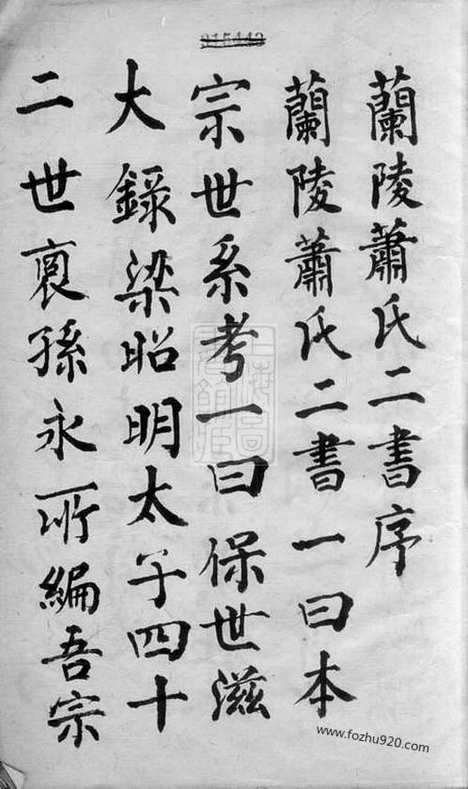 蘭陵蕭氏二書序
蘭陵蕭氏二書一曰本
宗世系考一曰保世滋
大錄梁昭明太子四十
二世裔孫永所編吾宗
315443
www.fozhu920.com